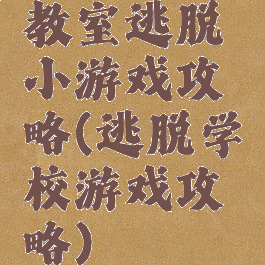 教室逃脱
小游戏攻
略(逃脱学
校游戏攻
略)